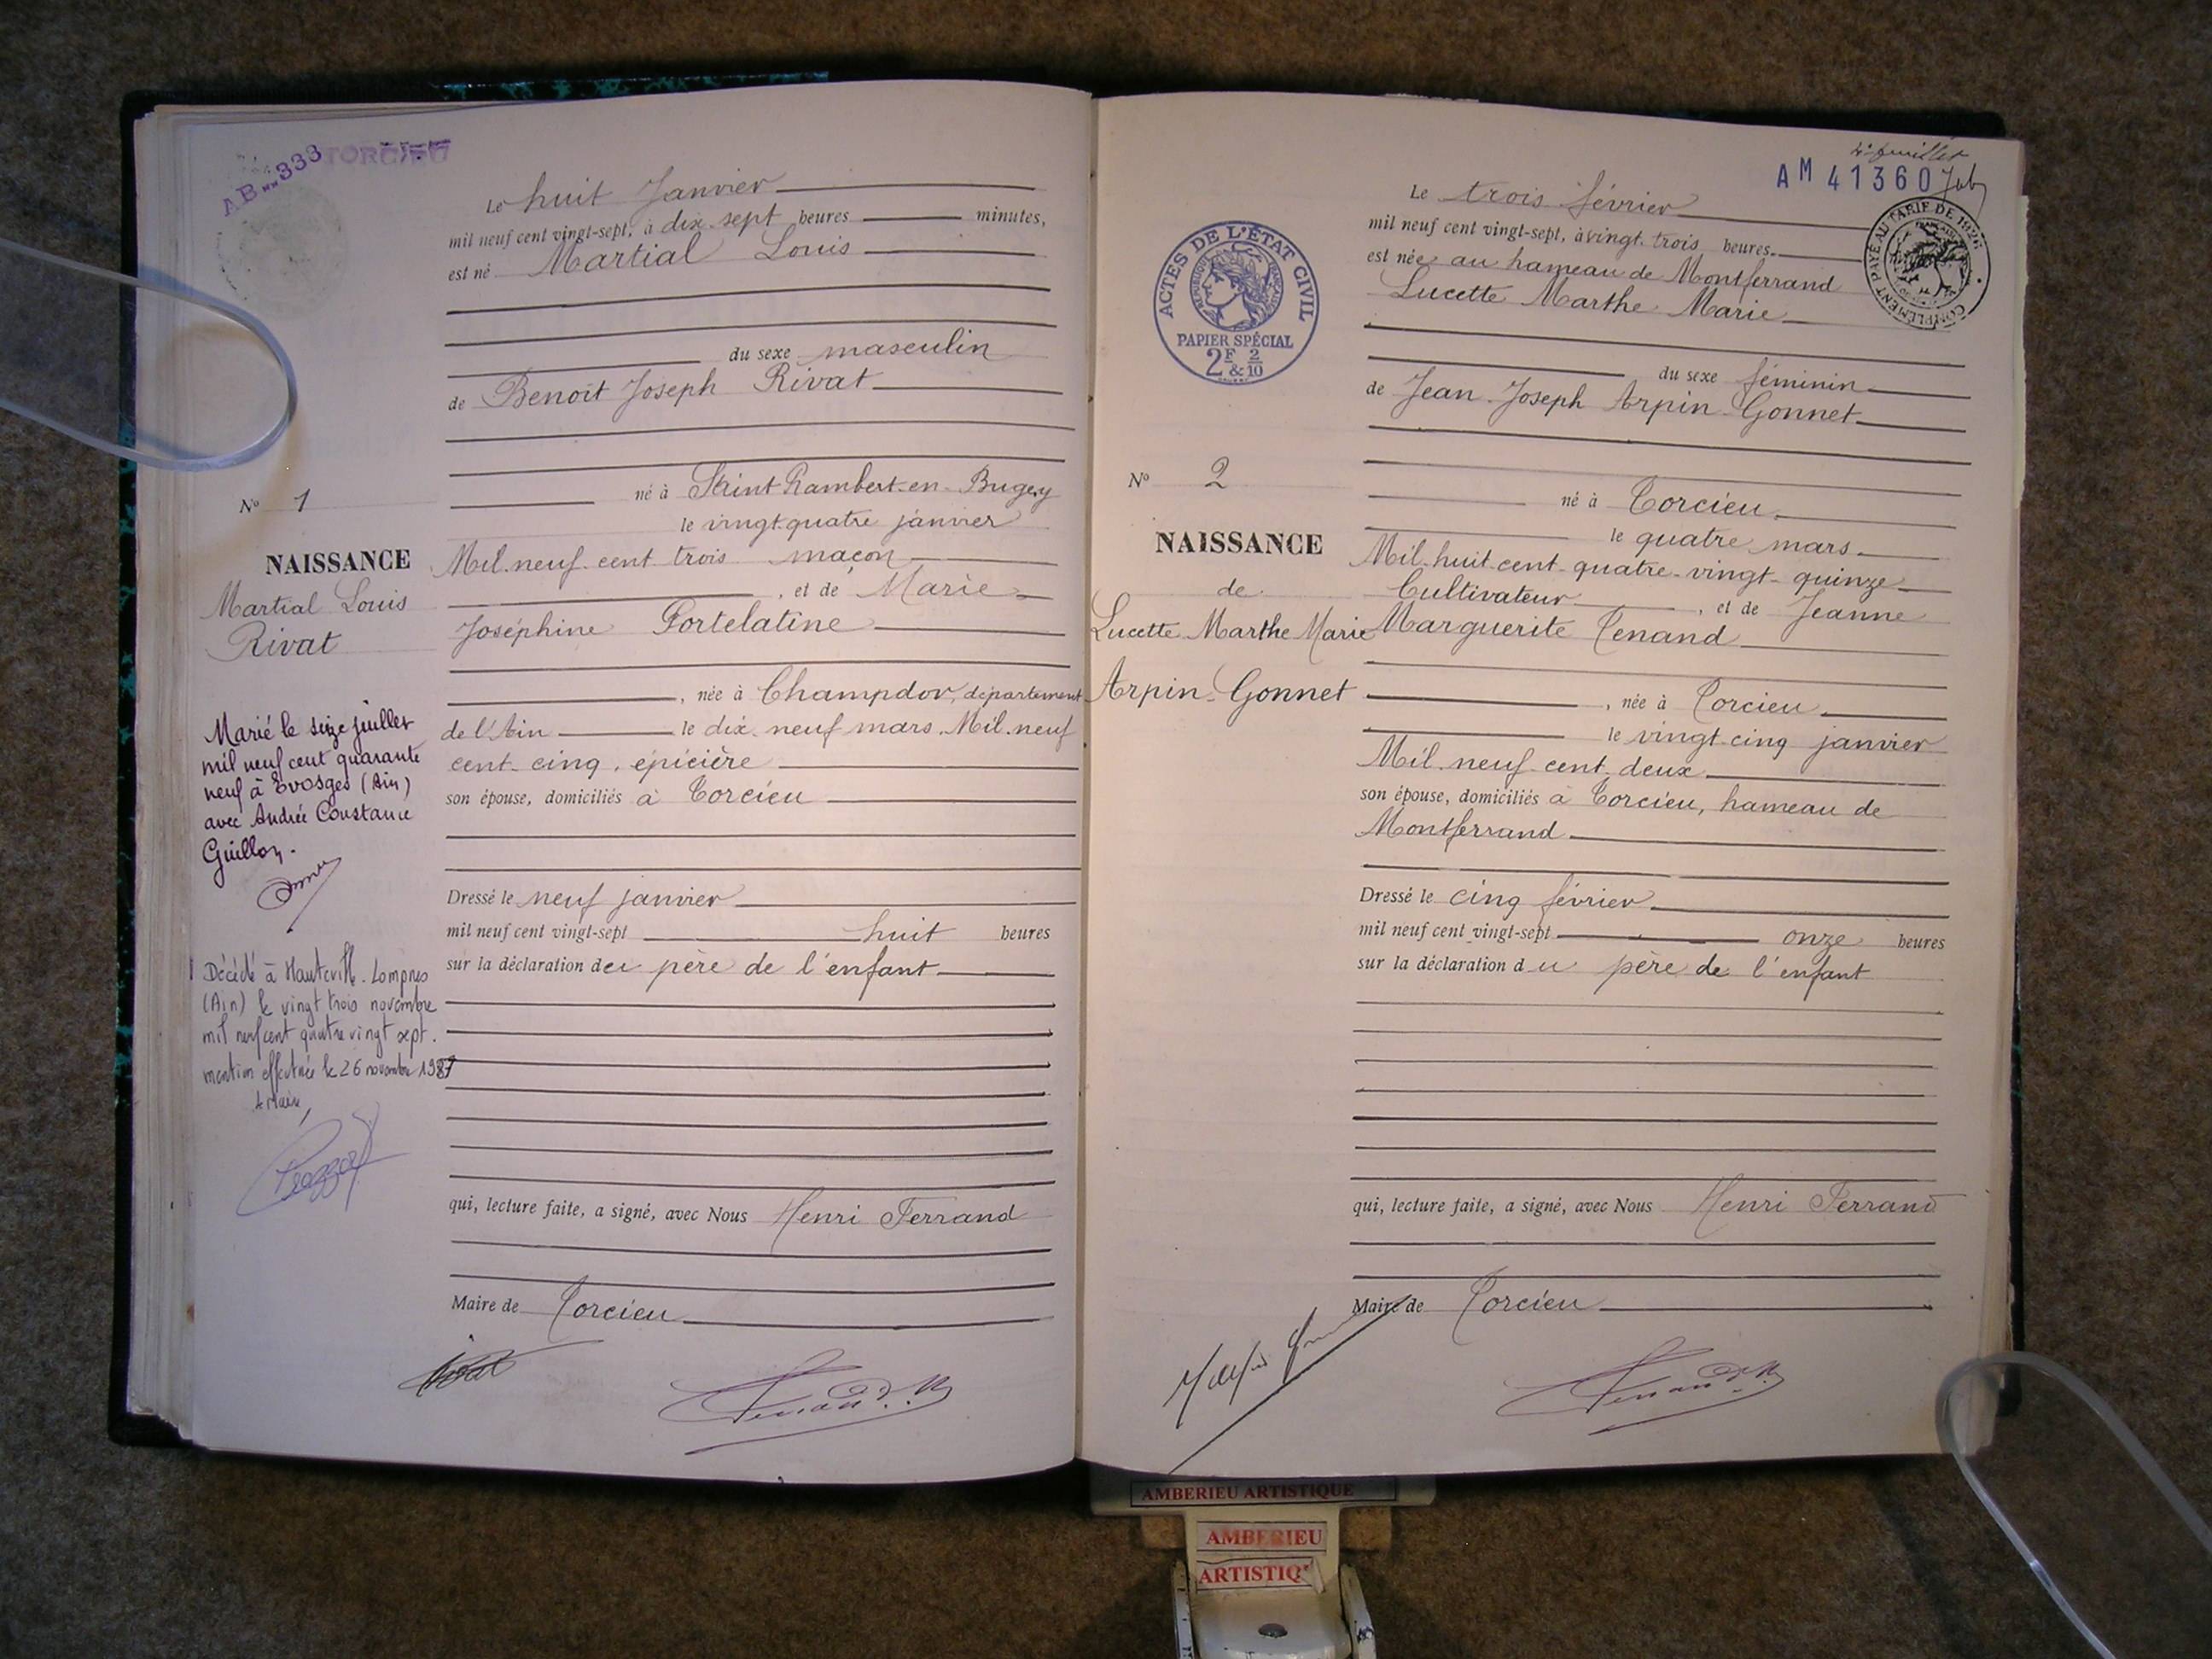 TORCIEU
AB 333
Le huit Janvier
mil neuf cent vingt-sept, à dix-sept heures minutes,
est né Martial Louis
du sexe masculin
de Benoît Joseph Rivat
né à Saint Rambert-en-Bugey
le vingt-quatre janvier
Mil-neuf-cent trois maçon
, et de Marie
Joséphine Portelatine
, née à Champdor, département
de l'Ain le dix-neuf mars Mil-neuf
cent-cinq, épicière
son épouse, domiciliés à Torcieu
Dressé le neuf janvier
mil neuf cent vingt-sept huit heures
sur la déclaration du père de l'enfant
qui, lecture faite, a signé, avec Nous Henri Ferrand
Maire de Torcieu
Rivat
Nº 1
NAISSANCE
Martial Louis
Rivat
Marié le seize juillet
mil neuf cent quarante
neuf à Evosges (Ain)
avec Andrée Constance
Guillon.
Décédé à Hauteville-Lompnes
(Ain) le vingt trois novembre
mil neuf cent quatre vingt sept.
mention effectuée le 26 novembre 1987
Le Maire,
4e feuillet
AM 41360
COMPLÉMENT PAYÉ AU TARIF DE 1926
ACTES DE L'ÉTAT CIVIL
RÉPUBLIQUE FRANÇAISE
PAPIER SPÉCIAL
2F & 2/10
Le trois février
mil neuf cent vingt-sept, à vingt-trois heures
est née au hameau de Montferrand
Lucette Marthe Marie
du sexe féminin
de Jean-Joseph Arpin-Gonnet
né à Torcieu
le quatre mars
Mil-huit-cent-quatre-vingt-quinze
Cultivateur , et de Jeanne
Marguerite Tenand
, née à Torcieu
le vingt-cinq janvier
Mil-neuf-cent-deux
son épouse, domiciliés à Torcieu, hameau de
Montferrand
Dressé le cinq février
mil neuf cent vingt-sept onze heures
sur la déclaration du père de l'enfant
qui, lecture faite, a signé, avec Nous Henri Ferrand
Maire de Torcieu
Nº 2
NAISSANCE
de
Lucette Marthe Marie
Arpin-Gonnet
AMBERIEU ARTISTIQUE
AMBERIEU
ARTISTIQ